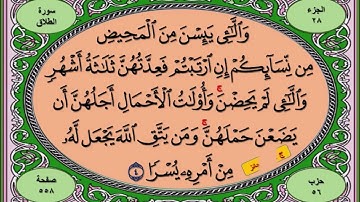 الجزء
٢٨
سورة
الطلاق
وَالَّٰٓـِٔى يَئِسْنَ مِنَ الْمَحِيضِ
مِن نِّسَآئِكُمْ إِنِ ارْتَبْتُمْ فَعِدَّتُهُنَّ ثَلَٰثَةُ أَشْهُرٍ
وَالَّٰٓـِٔى لَمْ يَحِضْنَ ۚ وَأُو۟لَٰتُ الْأَحْمَالِ أَجَلُهُنَّ أَن
يَضَعْنَ حَمْلَهُنَّ ۚ وَمَن يَتَّقِ اللَّهَ يَجْعَل لَّهُۥ
مِنْ أَمْرِهِۦ يُسْرًا ٤
ج
جائز
حزب
٥٦
صفحة
٥٥٨